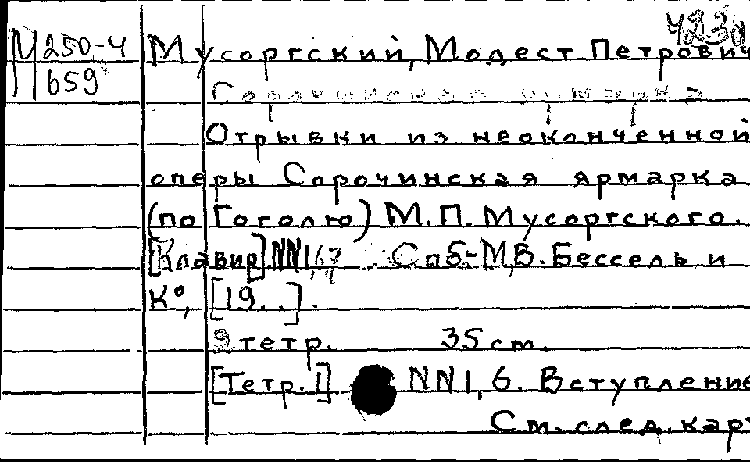 423д
М 250-4 Мусоргский, Модест Петрович
659
Сорочинская ярмарка
Отрывки из неоконченной
оперы Сорочинская ярмарка
(по Гоголю) М.П. Мусоргского.
[Клавир] NN1,6,7 Спб-М, В. Бессель и
К°, [19..].
9 тетр. 35 см.
[Тетр. 1] NN1, 6. Вступление
См. след. кар